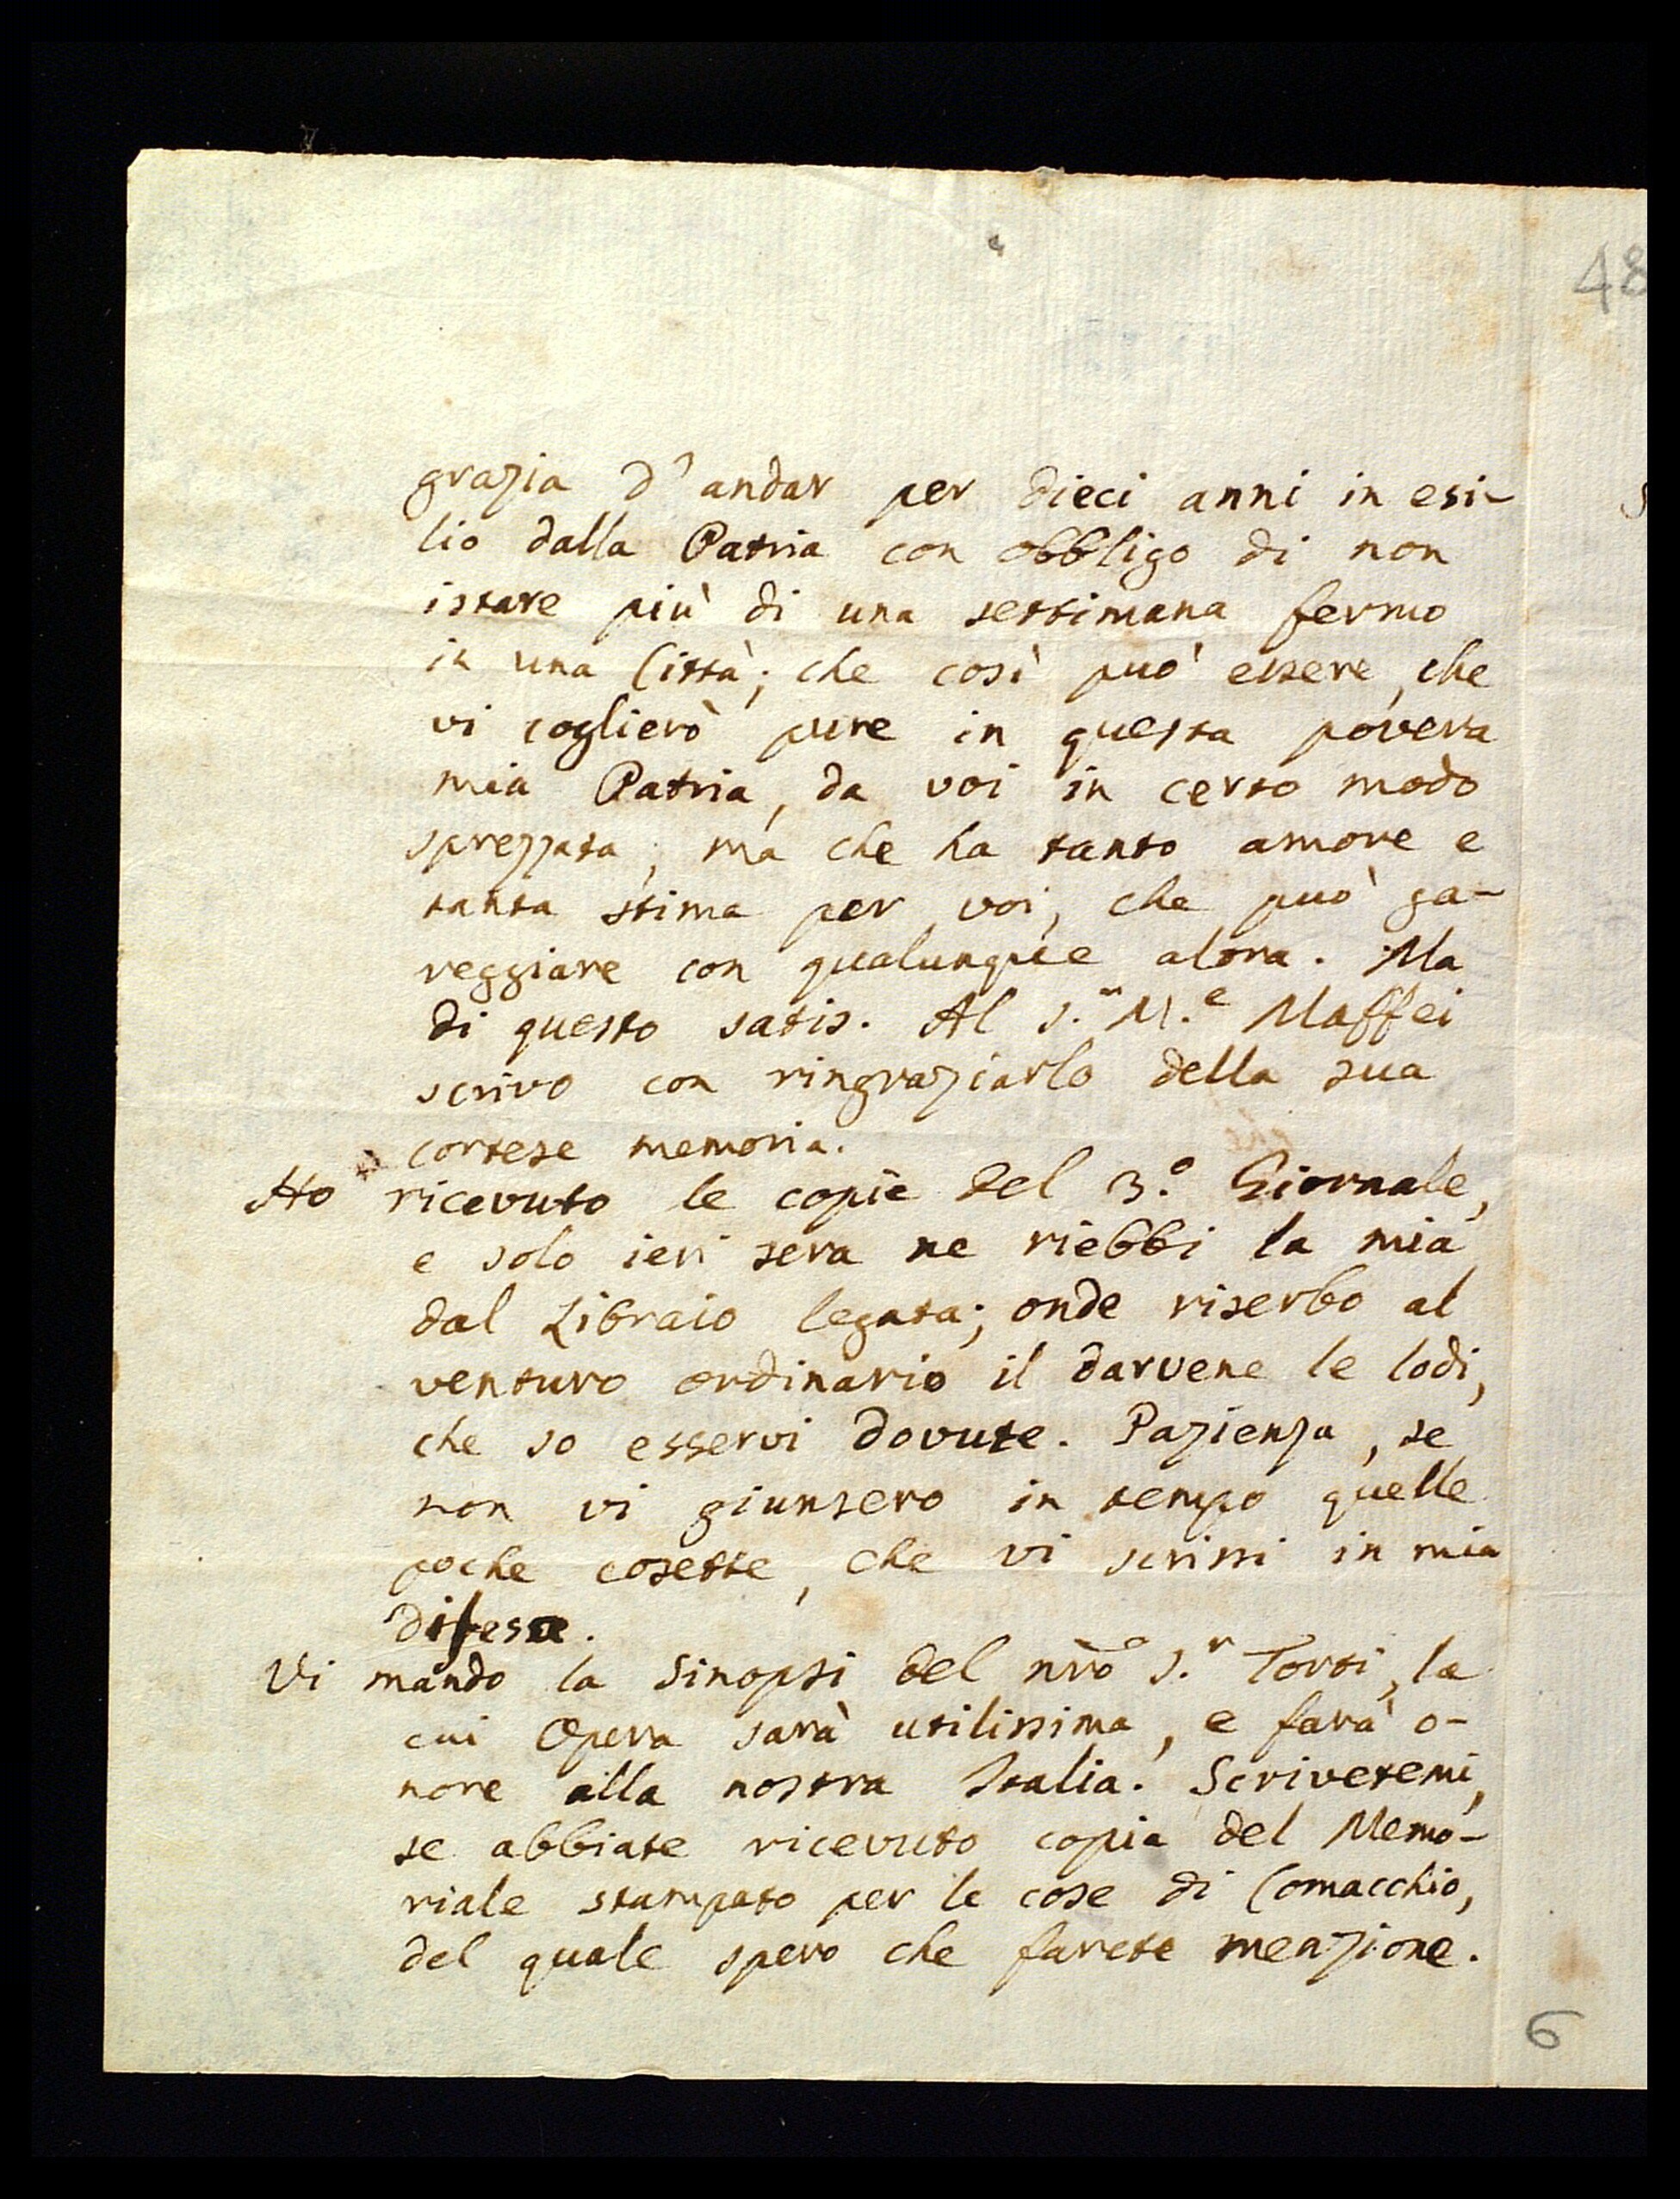 48
grazia d'andar per dieci anni in esi-
lio dalla Patria con obbligo di non
istare più di una settimana fermo
in una Città; che così può essere, che
vi coglierò pure in questa povera
mia Patria, da voi in certo modo
sprezzata; ma che ha tanto amore e
tanta stima per voi, che può ga-
reggiare con qualunque altra. Ma
di questo satis. Al S.r M.e Maffei
scrivo con ringraziarlo della sua
cortese memoria.
Ho ricevuto le copie del 3.o Giornale,
e solo ieri sera ne riebbi la mia
dal Libraio legata; onde riserbo al
venturo ordinario il darvene le lodi,
che so esservi dovute. Pazienza, se
non vi giunsero in tempo quelle
poche cosette, che vi scrissi in mia
difesa.
Vi mando la Sinopsi del nrõ S.r Torti, la
cui Opera sarà utilissima, e farà o-
nore alla nostra Italia. Scrivetemi,
se abbiate ricevuto copia del Memo-
riale stampato per le cose di Comacchio,
del quale spero che farete menzione.
6